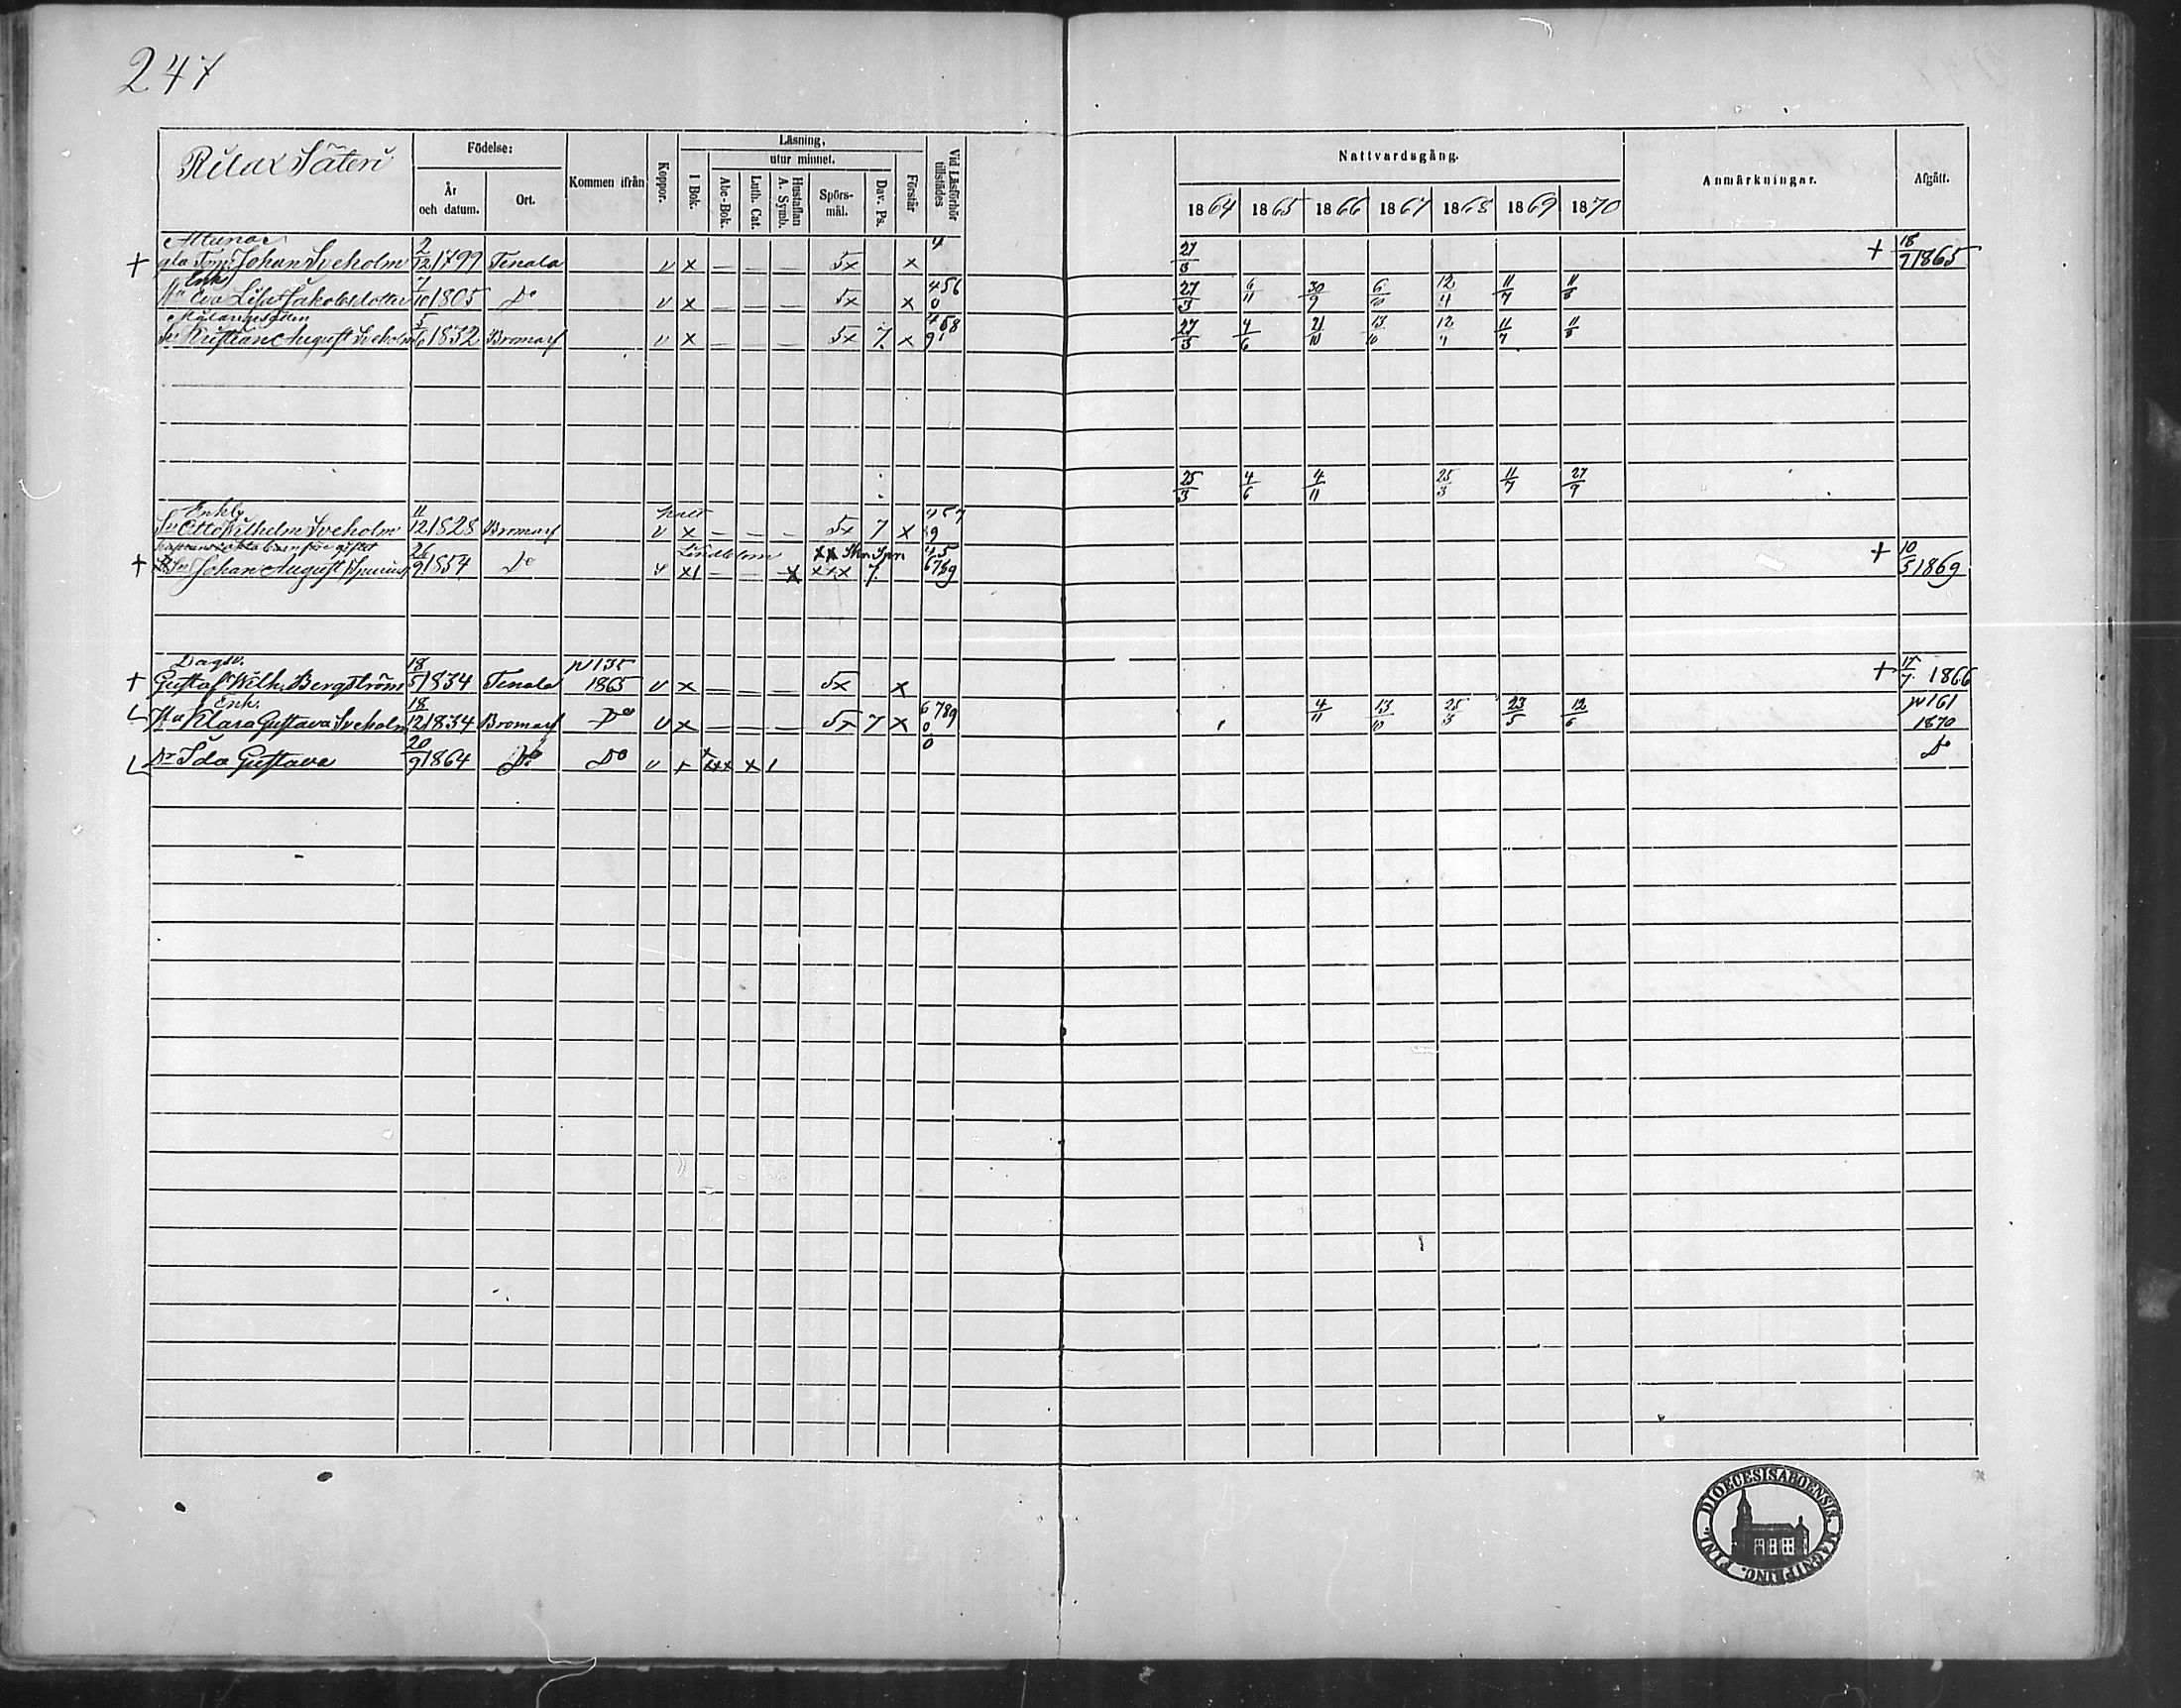 247
Rilax Säteri
Födelse:
År och datum.
Ort.
Kommen ifrån
Koppor.
Läsning,
I Bok.
utur minnet.
Abc-Bok.
Luth. Cat.
Hustaflan A. Symb.
Spörs-mål.
Dav. Ps.
Förstår
Vid Läsförhör tillstädes
Nattvardsgång.
1864 1865 1866 1867 1868 1869 1870
Anmärkningar.
Afgått.
4
+ Johan Sveholm 2/12 1799 Tenala v x — — — 5x x 27/3 + 18/7 1865
Enk. 456
Hu Eva Lisa Jakobsdotter 7/10 1805 Do v x — — — 5x x 0 27/3 6/11 30/9 6/10 12/4 11/7 11/8
458
Sn Kristian August Sveholm 5/6 1832 Bromarf v x — — — 5x 7. x 9 27/3 4/6 21/10 13/10 12/4 11/7 11/8
25/3 4/6 4/11 25/3 11/7 27/9
Enkl. 457
Sn Otto Wilhelm Sveholm 11/12 1828 Bromarf v x — — — 5x 7 x 9
Lindblom 45
+ Johan August Spurius 26/9 1854 Do x1 — — x xxx 7. 6789 + 10/5 1869
Dagsv. p 135
+ Gustaf Wilh. Bergström 18/5 1834 Tenala 1865 v x — — — 5x x + 15/7 1866
Enk. 6789 p 161
Hu Klara Gustava Sveholm 18/12 1834 Bromarf Do v x — — — 5x 7 x 0 4/11 13/10 25/3 23/5 12/6 1870
Dr Ida Gustava 20/9 1864 Do Do v xxx x 1 0 Do
FINL. DIOECESIS ABOENSIS. MAGNI PRINC.